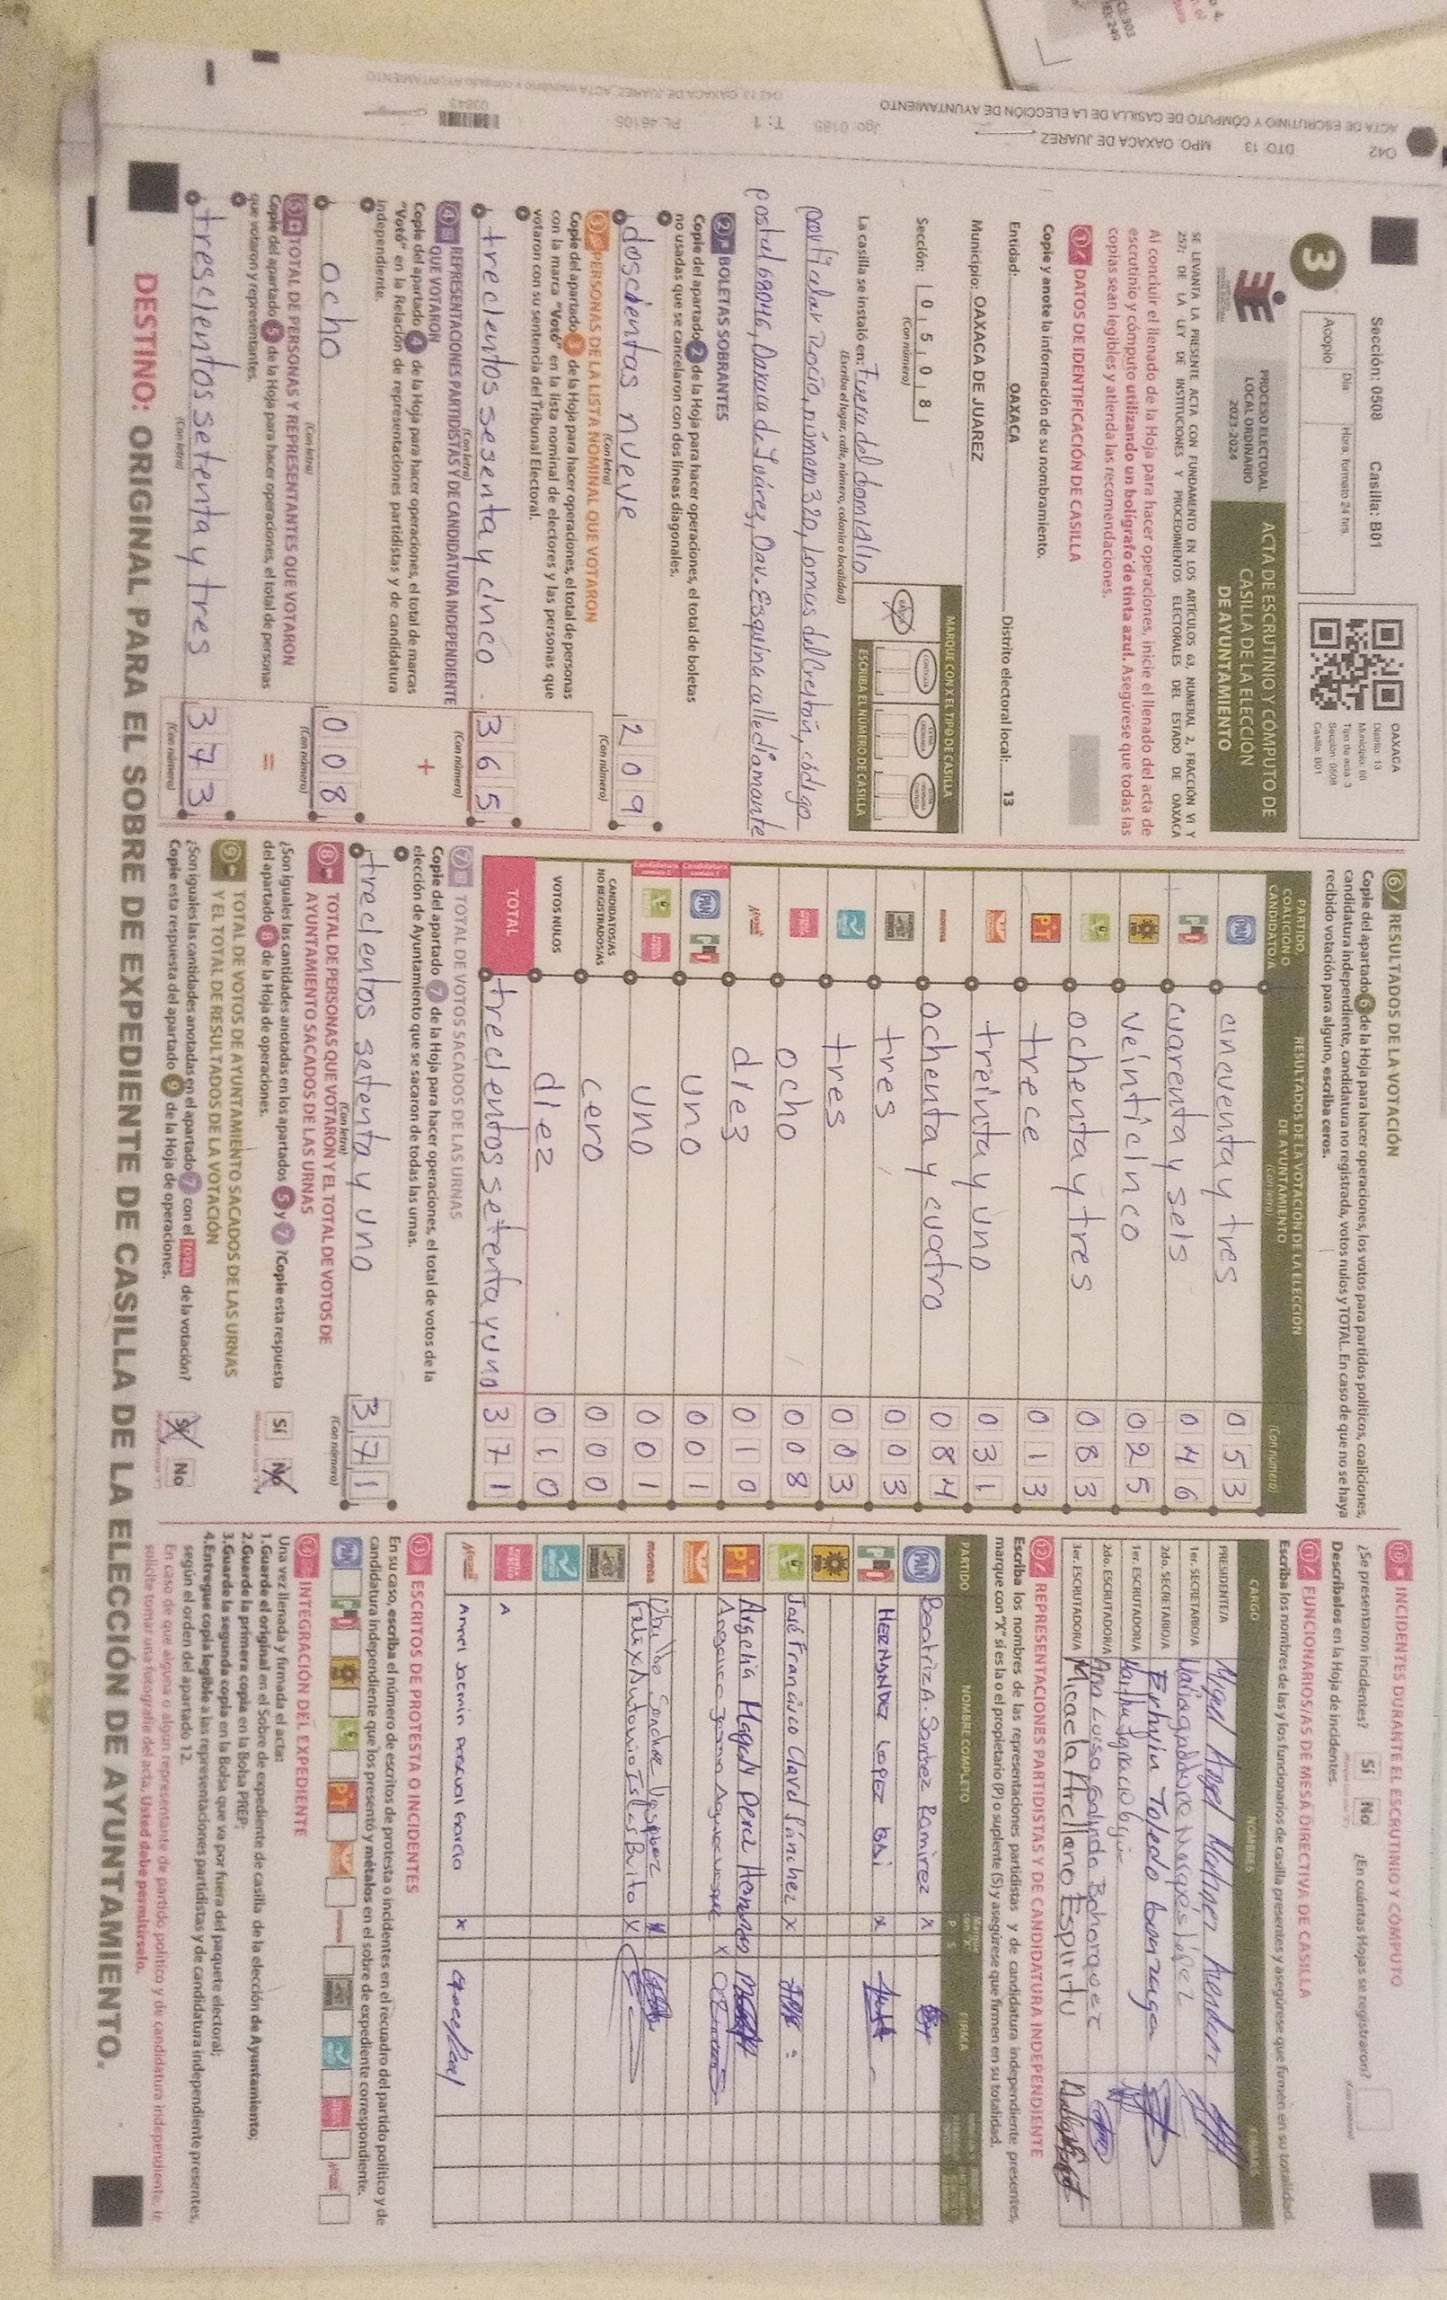 Sección: 0508 Casilla: B01
Día Hora, formato 24 hrs.
Acopio
OAXACA
Distrito: 13
Municipio: 80
Tipo de acta: 3
Sección: 0508
Casilla: B01
3
PROCESO ELECTORAL
LOCAL ORDINARIO
2023-2024
ACTA DE ESCRUTINIO Y CÓMPUTO DE
CASILLA DE LA ELECCIÓN
DE AYUNTAMIENTO
SE LEVANTA LA PRESENTE ACTA CON FUNDAMENTO EN LOS ARTÍCULOS 63, NUMERAL 2, FRACCIÓN VI Y
257; DE LA LEY DE INSTITUCIONES Y PROCEDIMIENTOS ELECTORALES DEL ESTADO DE OAXACA
Al concluir el llenado de la Hoja para hacer operaciones, inicie el llenado del acta de
escrutinio y cómputo utilizando un bolígrafo de tinta azul. Asegúrese que todas las
copias sean legibles y atienda las recomendaciones.
1 DATOS DE IDENTIFICACIÓN DE CASILLA
Copie y anote la información de su nombramiento.
Entidad: OAXACA Distrito electoral local: 13
Municipio: OAXACA DE JUAREZ
Sección: 0 5 0 8
(Con número)
MARQUE CON X EL TIPO DE CASILLA
ESCRIBA EL NÚMERO DE CASILLA
La casilla se instaló en: Fuera del domicilio
(Escriba el lugar, calle, número, colonia o localidad)
particular Rocío, número 320, Lomas del Crestón, código
postal 68046, Oaxaca de Juárez, Oax. Esquina calle diamante
2 BOLETAS SOBRANTES
Copie del apartado 2 de la Hoja para hacer operaciones, el total de boletas
no usadas que se cancelaron con dos líneas diagonales.
doscientas nueve 209
(Con letra) (Con número)
3 PERSONAS DE LA LISTA NOMINAL QUE VOTARON
Copie del apartado 3 de la Hoja para hacer operaciones, el total de personas
con la marca "Votó" en la lista nominal de electores y las personas que
votaron con su sentencia del Tribunal Electoral.
trecientos sesenta y cinco 365
(Con letra) (Con número)
4 REPRESENTACIONES PARTIDISTAS Y DE CANDIDATURA INDEPENDIENTE
QUE VOTARON
Copie del apartado 4 de la Hoja para hacer operaciones, el total de marcas
"Votó" en la Relación de representaciones partidistas y de candidatura
independiente.
+
ocho 008
(Con letra) (Con número)
5 TOTAL DE PERSONAS Y REPRESENTANTES QUE VOTARON
Copie del apartado 5 de la Hoja para hacer operaciones, el total de personas
que votaron y representantes.
=
tresclentos setenta y tres 373
(Con letra) (Con número)
6 RESULTADOS DE LA VOTACIÓN
Copie del apartado 6 de la Hoja para hacer operaciones, los votos para partidos políticos, coaliciones,
candidatura independiente, candidatura no registrada, votos nulos y TOTAL. En caso de que no se haya
recibido votación para alguno, escriba ceros.
PARTIDO,
COALICIÓN O
CANDIDATO/A
RESULTADOS DE LA VOTACIÓN DE LA ELECCIÓN
DE AYUNTAMIENTO
(Con letra) (Con número)
PAN cincuenta y tres 053
PRI cuarenta y seis 046
PRD veinticinco 025
ochenta y tres 083
PT trece 013
treinta y uno 031
morena ochenta y cuatro 084
tres 003
tres 003
ocho 008
diez 010
PAN PRI uno 001
uno 001
CANDIDATOS/AS
NO REGISTRADOS/AS cero 000
VOTOS NULOS diez 010
TOTAL trecientos setenta y uno 371
7 TOTAL DE VOTOS SACADOS DE LAS URNAS
Copie del apartado 7 de la Hoja para hacer operaciones, el total de votos de la
elección de Ayuntamiento que se sacaron de todas las urnas.
trecientos setenta y uno 371
(Con letra) (Con número)
8 TOTAL DE PERSONAS QUE VOTARON Y EL TOTAL DE VOTOS DE
AYUNTAMIENTO SACADOS DE LAS URNAS
¿Son iguales las cantidades anotadas en los apartados 5 y 7 ? Copie esta respuesta
del apartado 8 de la Hoja de operaciones. Sí No
9 TOTAL DE VOTOS DE AYUNTAMIENTO SACADOS DE LAS URNAS
Y EL TOTAL DE RESULTADOS DE LA VOTACIÓN
¿Son iguales las cantidades anotadas en el apartado 7 con el TOTAL de la votación?
Copie esta respuesta del apartado 9 de la Hoja de operaciones. Sí No
10 INCIDENTES DURANTE EL ESCRUTINIO Y CÓMPUTO
¿Se presentaron incidentes? Sí No ¿En cuántas Hojas se registraron?
Descríbalos en la Hoja de incidentes.
11 FUNCIONARIOS/AS DE MESA DIRECTIVA DE CASILLA
Escriba los nombres de las y los funcionarios de casilla presentes y asegúrese que firmen en su totalidad.
CARGO NOMBRES FIRMAS
PRESIDENTE/A Miguel Angel
1er. SECRETARIO/A
2do. SECRETARIO/A Toledo
1er. ESCRUTADOR/A
2do. ESCRUTADOR/A Ana Luisa Galindo Bohorquez
3er. ESCRUTADOR/A Micaela Arellano Espiritu
12 REPRESENTACIONES PARTIDISTAS Y DE CANDIDATURA INDEPENDIENTE
Escriba los nombres de las representaciones partidistas y de candidatura independiente presentes,
marque con "X" si es la o el propietario (P) o suplente (S) y asegúrese que firmen en su totalidad.
PARTIDO NOMBRE COMPLETO P S FIRMA
PAN Beatriz A. Sanchez Ramirez x
PRI HERNANDEZ LOPEZ x
José Francisco Clavel Sánchez x
PT Argelia Magaly Perez
morena Felix Antonio Islas Brito x
Pascual García x
13 ESCRITOS DE PROTESTA O INCIDENTES
En su caso, escriba el número de escritos de protesta o incidentes en el recuadro del partido político y de
candidatura independiente que los presentó y métalos en el sobre de expediente correspondiente.
INTEGRACIÓN DEL EXPEDIENTE
Una vez llenada y firmada el acta:
1.Guarde el original en el Sobre de expediente de casilla de la elección de Ayuntamiento;
2.Guarde la primera copia en la Bolsa PREP;
3.Guarde la segunda copia en la Bolsa que va por fuera del paquete electoral;
4.Entregue copia legible a las representaciones partidistas y de candidatura independiente presentes,
según el orden del apartado 12.
En caso de que alguna o algún representante de partido político y de candidatura independiente, le
solicite tomar una fotografía del acta, Usted debe permitírselo.
DESTINO: ORIGINAL PARA EL SOBRE DE EXPEDIENTE DE CASILLA DE LA ELECCIÓN DE AYUNTAMIENTO.
C42 DTO. 13 MPO. OAXACA DE JUAREZ
ACTA DE ESCRUTINIO Y CÓMPUTO DE CASILLA DE LA ELECCIÓN DE AYUNTAMIENTO
Jgo: 0185 T: 1 PL 46105